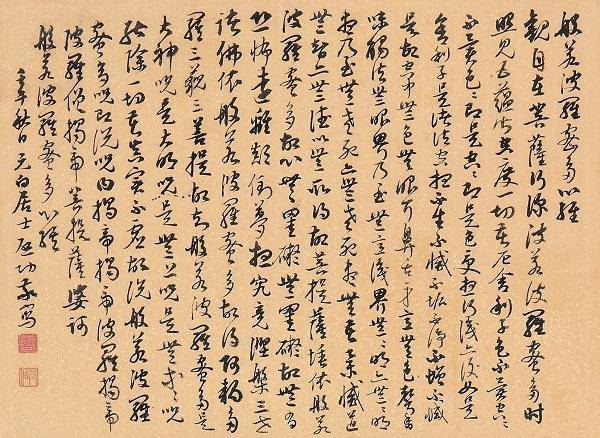 般若波羅蜜多心經
觀自在菩薩行深般若波羅蜜多時
照見五蘊皆空度一切苦厄舍利子色不異空空
不異色色即是空空即是色受想行識亦復如是
舍利子是諸法空相不生不滅不垢不淨不增不減
是故空中無色無眼耳鼻舌身意無色聲香
味觸法無眼界乃至無意識界無無明亦無無明
盡乃至無老死亦無老死盡無苦集滅道
無智亦無得以無所得故菩提薩埵依般若
波羅蜜多故心無罣礙無罣礙故無有
恐怖遠離顛倒夢想究竟涅槃三世
諸佛依般若波羅蜜多故得阿耨多
羅三藐三菩提故知般若波羅蜜多是
大神咒是大明咒是無上咒是無等等咒
能除一切苦真實不虛故說般若波羅
蜜多咒即說咒曰揭帝揭帝波羅揭帝
波羅僧揭帝菩提薩婆訶
般若波羅蜜多心經
秋日元白居士启功敬寫